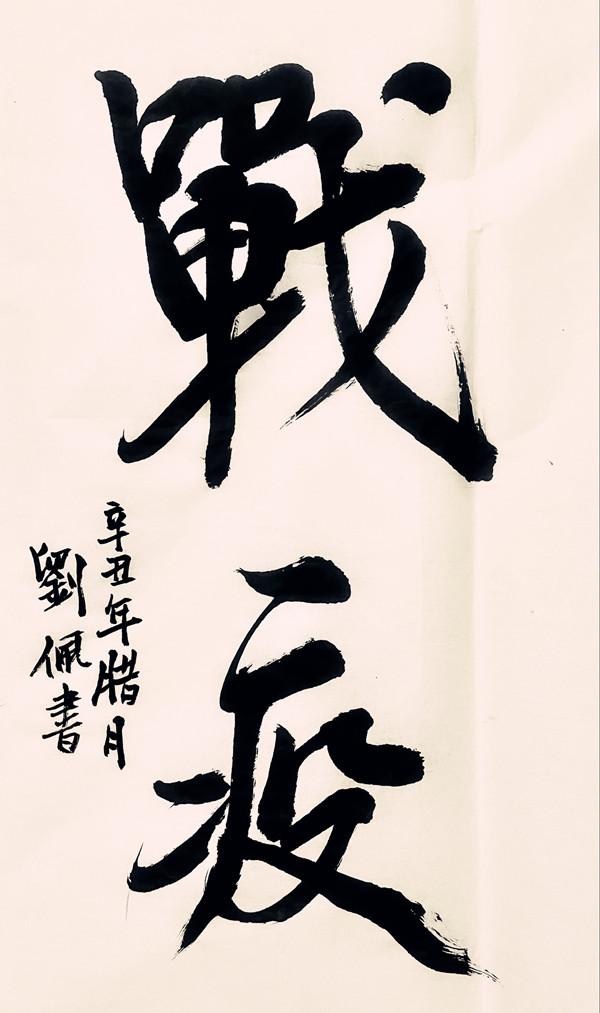 戰疫
辛丑年腊月
劉佩書